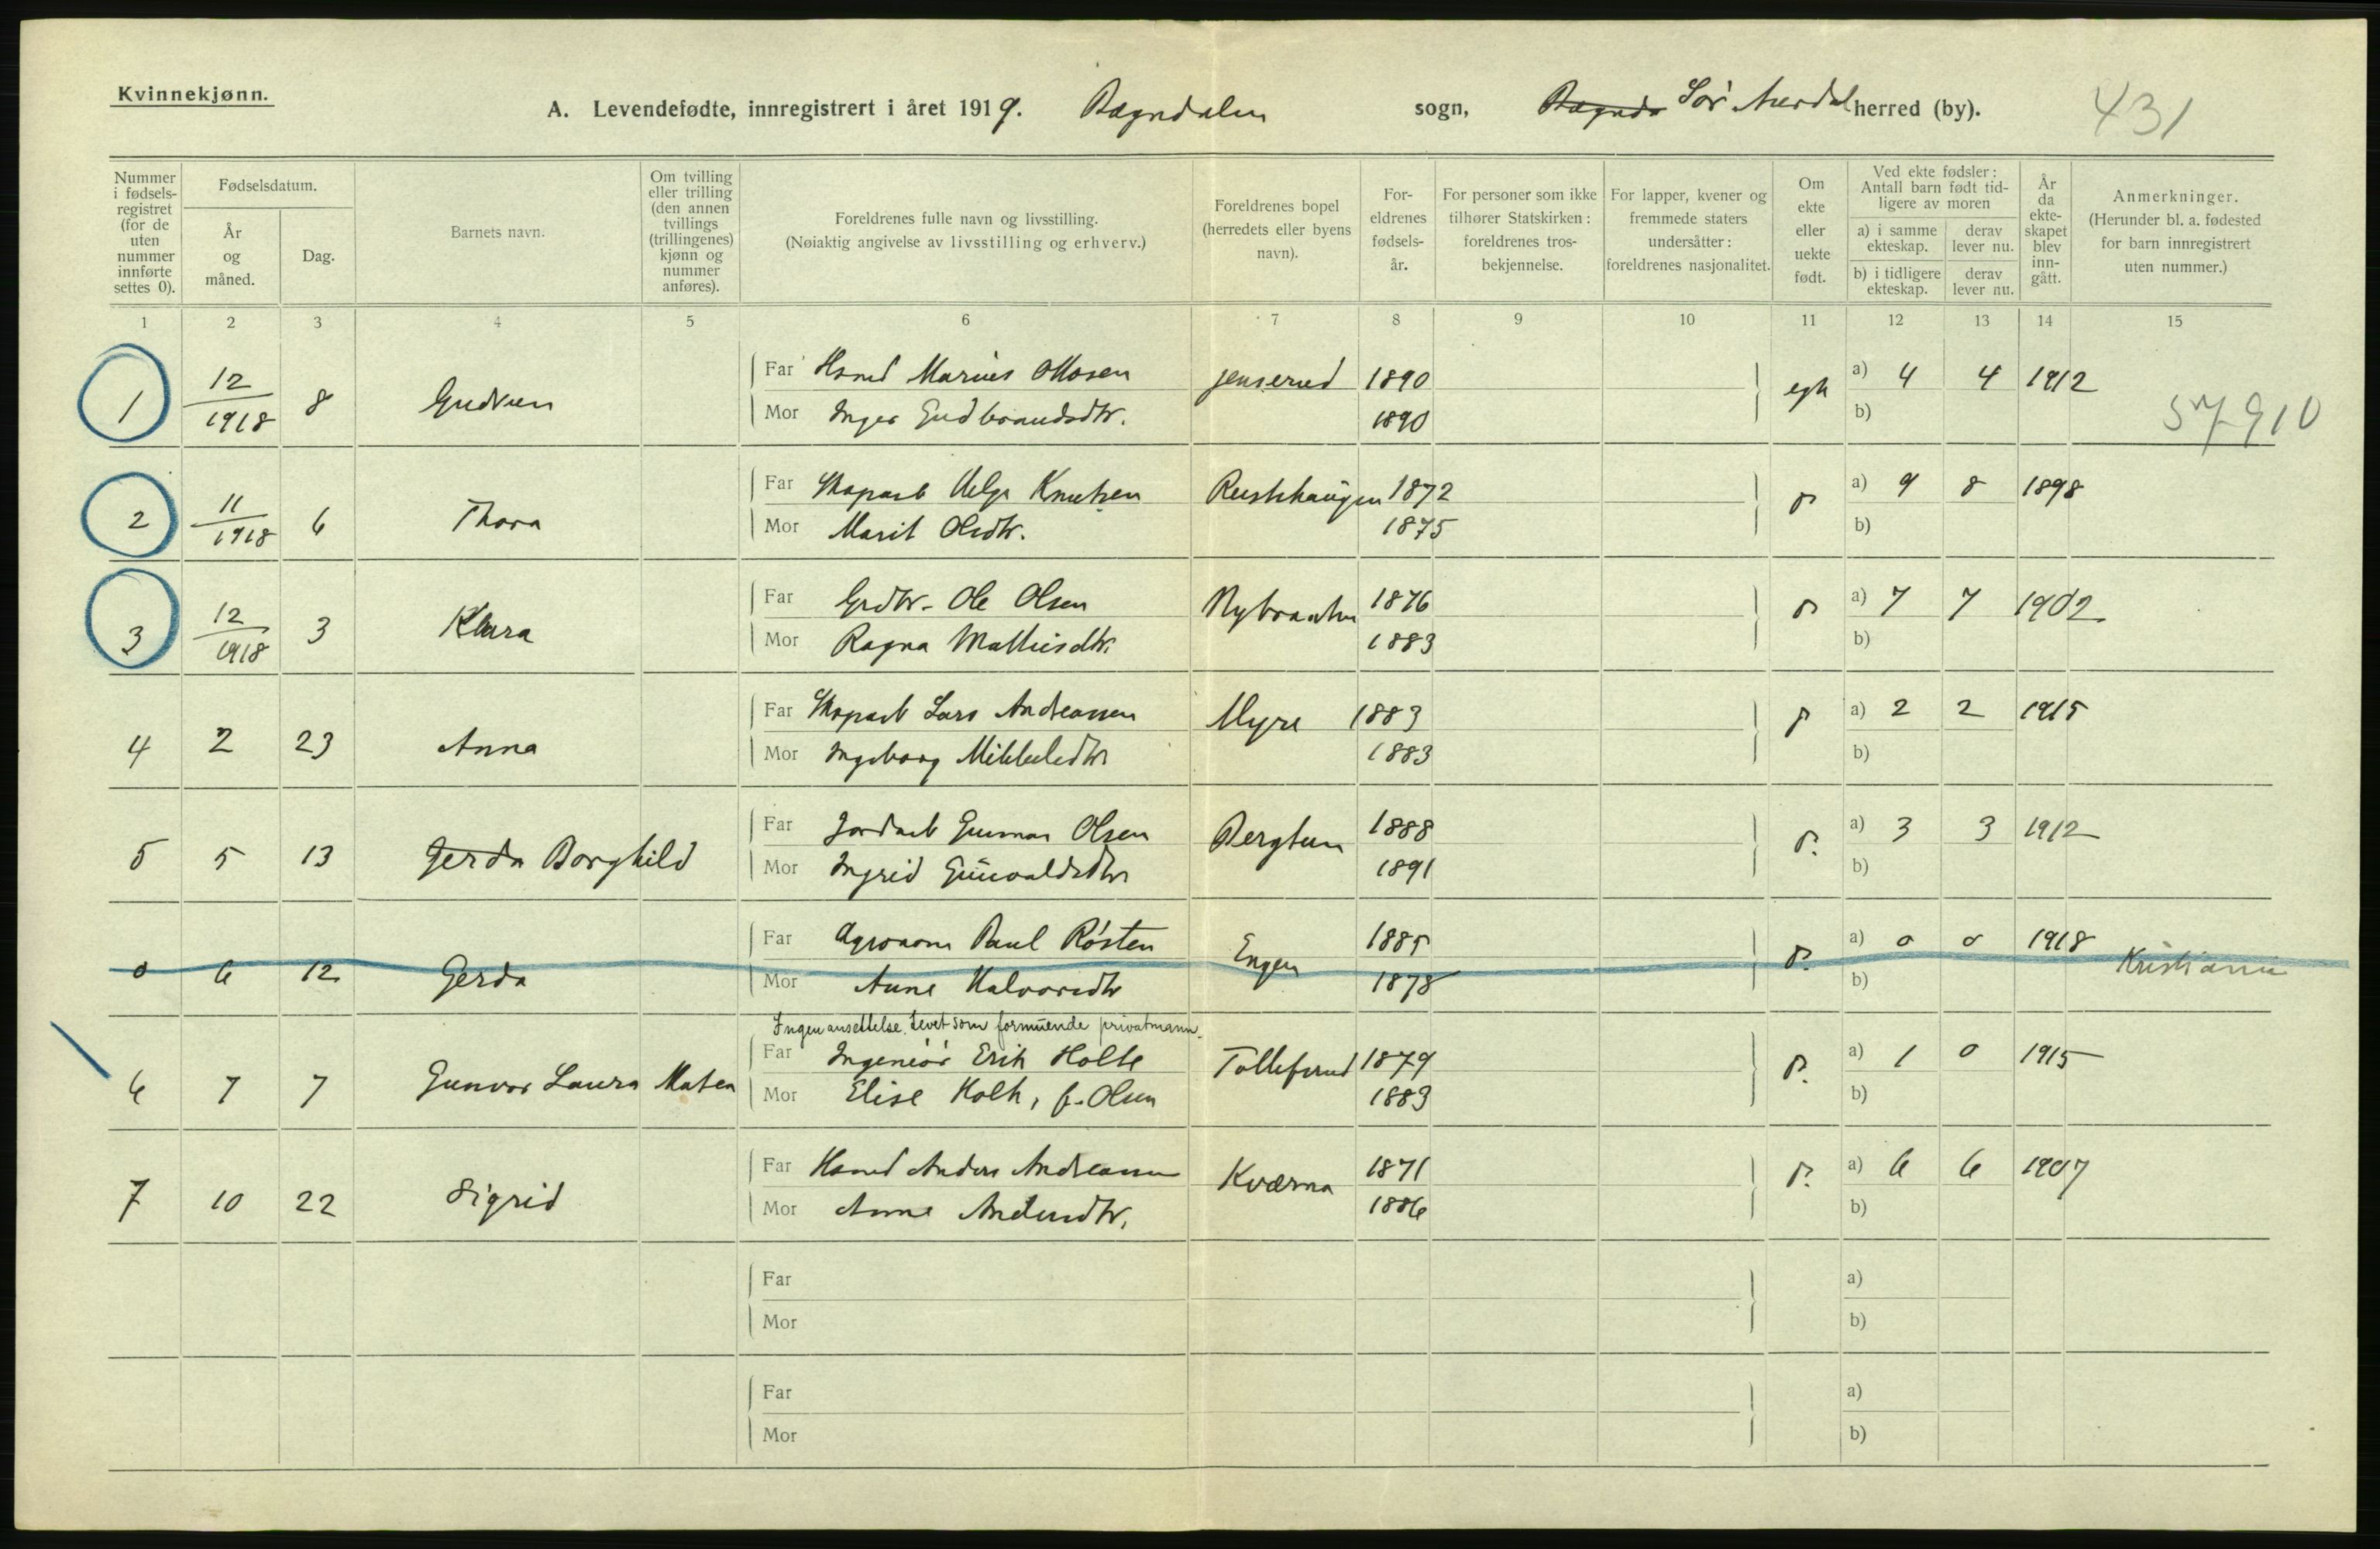 Kvinnekjønn.
A. Levendefødte, innregistrert i året 1919. Bagndalen sogn, Bagnda Sør Aurdal herred (by). 431
Nummer i fødsels-registret (for de uten nummer innførte settes 0).
Fødselsdatum.
År og måned.
Dag.
Barnets navn.
Om tvilling eller trilling (den annen tvillings (trillingenes) kjønn og nummer anføres).
Foreldrenes fulle navn og livsstilling.
(Nøiaktig angivelse av livsstilling og erhverv.)
Foreldrenes bopel (herredets eller byens navn).
For-eldrenes fødsels-år.
For personer som ikke tilhører Statskirken: foreldrenes tros-bekjennelse.
For lapper, kvener og fremmede staters undersåtter: foreldrenes nasjonalitet.
Om ekte eller uekte født.
Ved ekte fødsler: Antall barn født tid-ligere av moren
a) i samme ekteskap.
derav lever nu.
b) i tidligere ekteskap.
derav lever nu.
År da ekte-skapet blev inn-gått.
Anmerkninger.
(Herunder bl. a. fødested for barn innregistrert uten nummer.)
1 2 3 4 5 6 7 8 9 10 11 12 13 14 15
1 12/1918 8 Gudrun Far Hsmd Marius Ottosen Jenserud 1890 egte a) 4 4 1912
Mor Inger Gudbrandsdtr. 1890 b) 57910
2 11/1918 6 Thora Far Skoparb Helge Knutsen Rustehaugen 1872 a) 9 8 1898
Mor Marit Olsdtr. 1875 b)
3 12/1918 3 Klara Far Grdbr. Ole Olsen Nybraaten 1876 a) 7 7 1902
Mor Ragna Mathisdtr. 1883 b)
4 2 23 Anna Far Skoparb Lars Andreassen Myre 1883 a) 2 2 1915
Mor Ingeborg Mikkelsdtr 1883 b)
5 5 13 Gerda Borghild Far Jordarb Gunnar Olsen Bergtun 1888 a) 3 3 1912
Mor Ingrid Guuvaldsdtr 1891 b)
0 6 12 Gerda Far Agronom Paul Røsten Engen 1885 a) 0 0 1918 Kristiania
Mor Anne Halvorsdtr 1878 b)
Ingen ansettelse. Levet som formuende privatmann.
6 7 7 Gunvor Laura Matea Far Ingeniør Erik Holte Tollefsrud 1879 a) 1 0 1915
Mor Elise Holte, f. Olsen 1883 b)
7 10 22 Sigrid Far Hsmd Anders Andreassen Kværna 1871 a) 6 6 1907
Mor Anne Andersdtr. 1886 b)
Far a)
Mor b)
Far a)
Mor b)